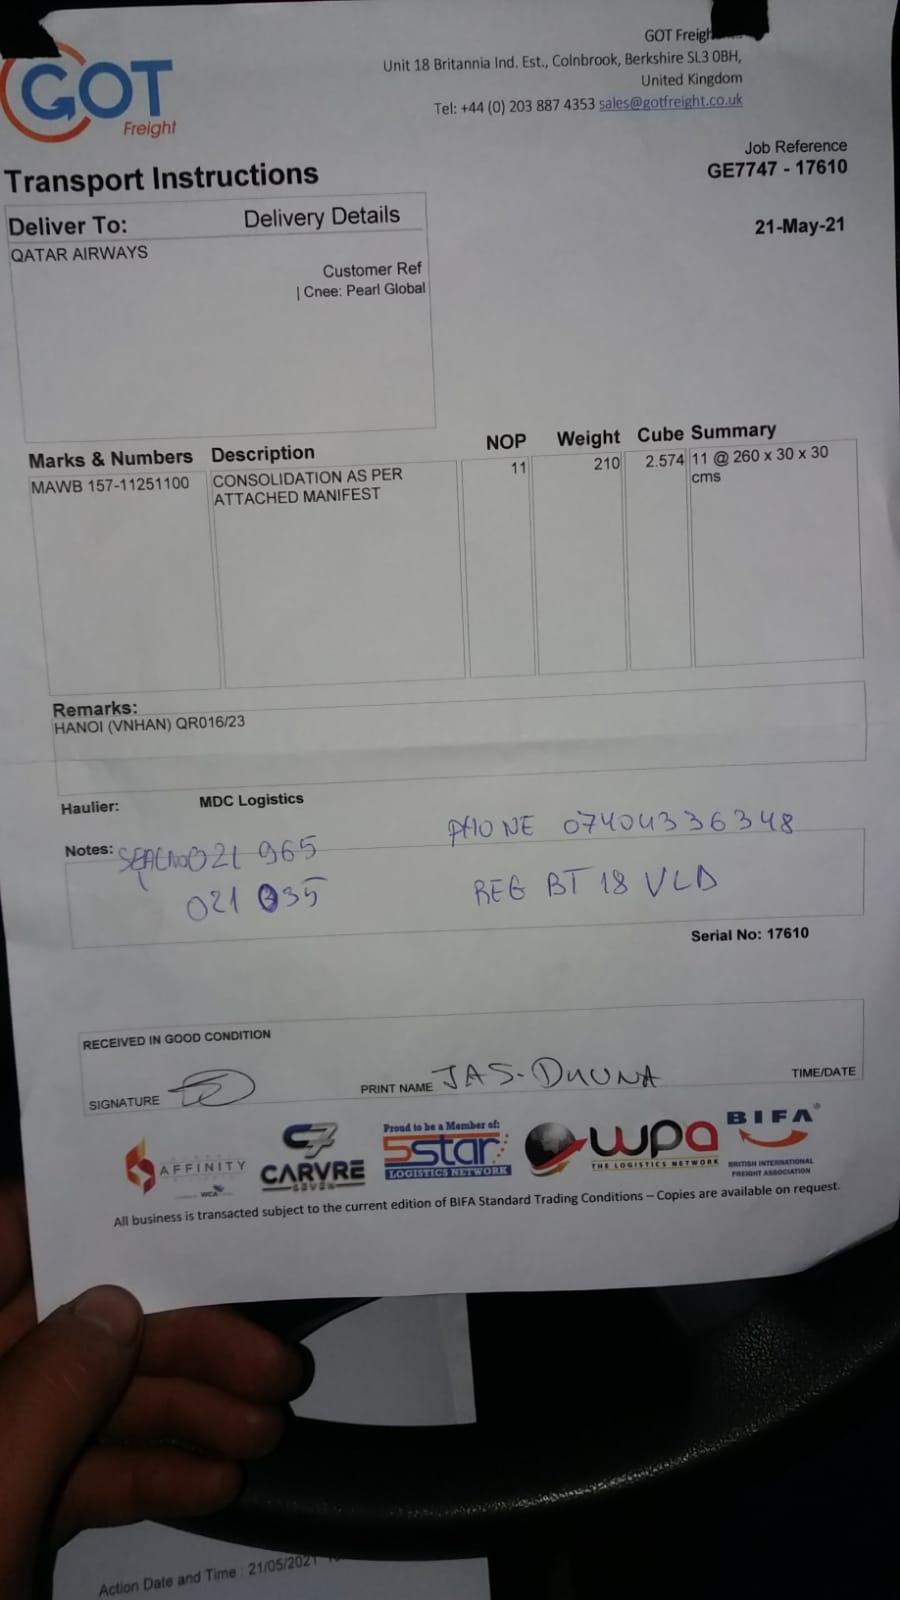 GOT
Freight
GOT
Unit 18 Britannia Ind. Est., Colnbrook, Berkshire SL3 0BH,
United Kingdom
Tel: +44 (0) 203 887 4353 sales@gotfreight.co.uk
Job Reference
GE7747 - 17610
21-May-21
Transport Instructions
Deliver To: Delivery Details
QATAR AIRWAYS
Customer Ref
| Cnee: Pearl Global
Marks & Numbers Description NOP Weight Cube Summary
MAWB 157-11251100 CONSOLIDATION AS PER 11 210 2.574 11 @ 260 x 30 x 30
ATTACHED MANIFEST cms
Remarks:
HANOI (VNHAN) QR016/23
Haulier: MDC Logistics
PHONE 07404336348
Notes: 021 965
021 035
REG BT 18 VLD
Serial No: 17610
RECEIVED IN GOOD CONDITION
SIGNATURE PRINT NAME JAS- TIME/DATE
AFFINITY
WCA
CARVRE
SEVEN
Proud to be a Member of:
5star
LOGISTICS NETWORK
wpa
THE LOGISTICS NETWORK
BIFA
BRITISH INTERNATIONAL
FREIGHT ASSOCIATION
All business is transacted subject to the current edition of BIFA Standard Trading Conditions – Copies are available on request.
Action Date and Time : 21/05/2021